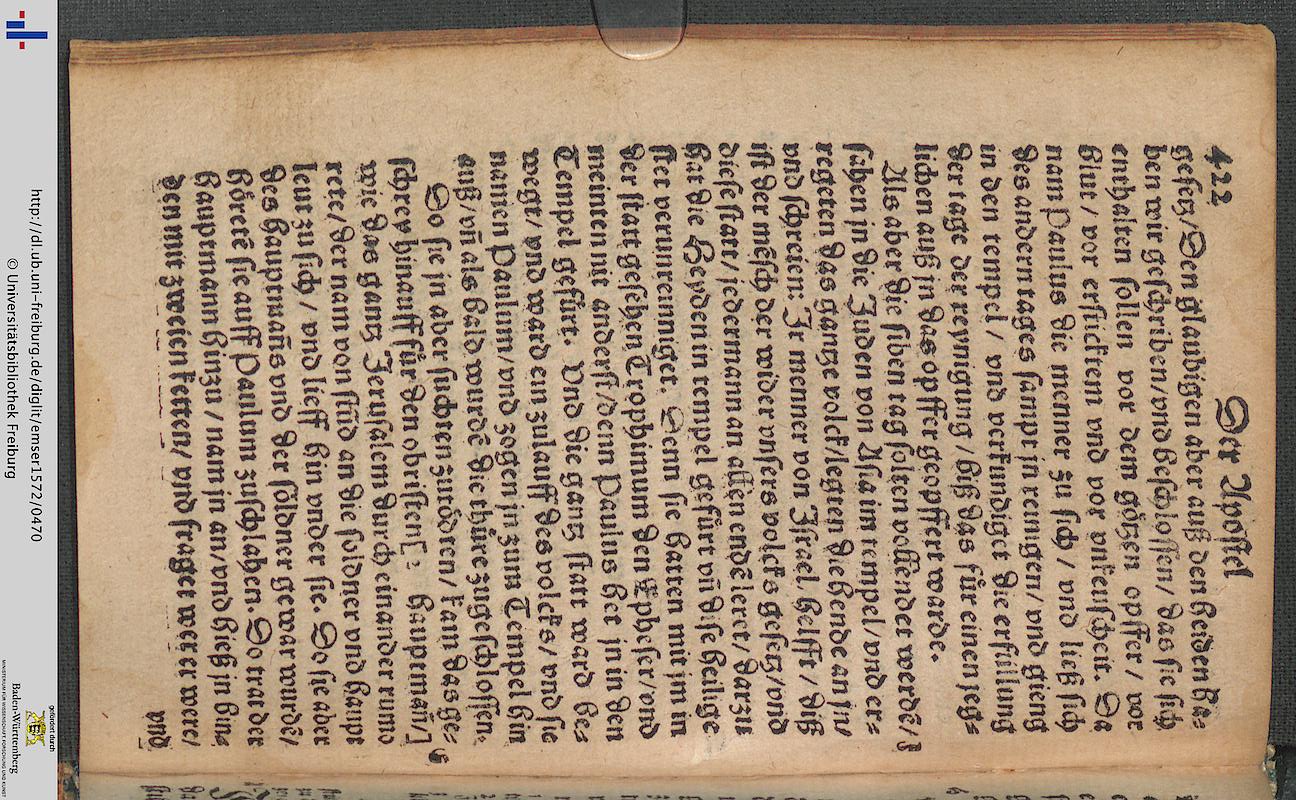 422
Der Apostel
gesetz/Den glaubigen aber auß den heiden ha-
ben wir geschriben/vnd beschlossen/ das sie sich
enthalten sollen vor dem götzen opffer/ vor
blut/ vor ersticktem vnd vor vnkeuscheit. Da
nam Paulus die menner zu sich/ vnd ließ sich
des andern tages sampt jn reinigen/ vnd gieng
in den tempel/ vnd verkundiget die erfüllung
der tage der reynigung/ biß das für einen jeg-
lichen auß jn das opffer geopffert warde.
Als aber die siben tag solten vollendet werdē/
sahen jn die Juden von Asia im tempel/vnd er-
regeten das gantze volck/legten die hende an jn/
vnd schreien: Jr menner von Israel helfft/ diß
ist der mēsch der wider vnsers volcks gesetz/vnd
diese stat/jederman an allen endē leret/ darzů
hat die Heyden in tempel gefürt vñ dise heilige
stet verunreinniget. Denn sie hatten mit jm in
der stat gesehen Trophimum den Epheser/vnd
meinten nit anderst/denn Paulus het jn in den
Tempel gefürt. Vnd die gantz statt ward be-
wegt/vnd ward ein zulauff des volcks/ vnd sie
namen Paulum/vnd zogen jn zum Tempel hin
auß/vñ als bald wurdē die thüre zugeschlossen.
So sie jn aber suchten zutödten/ kam das ge-
schrey hinauff für den obristen[: hauptmañ]
wie das gantz Jerusalem durch einander rumo
rete/der nam von stūd an die soldner vnd haupt
leut zu sich/ vnd lieff hin vnder sie. So sie aber
des hauptmañs vnd der söldner gewar wurdē/
höretē sie auff Paulum zuschlahen. So trat der
hauptmann hinzu/ nam jn an/vnd hieß jn bin-
den mit zweien ketten/ vnd fraget wer er were/
vnd
http://dl.ub.uni-freiburg.de/diglit/emser1572/0470
© Universitätsbibliothek Freiburg
gefördert durch
Baden-Württemberg
MINISTERIUM FÜR WISSENSCHAFT, FORSCHUNG UND KUNST